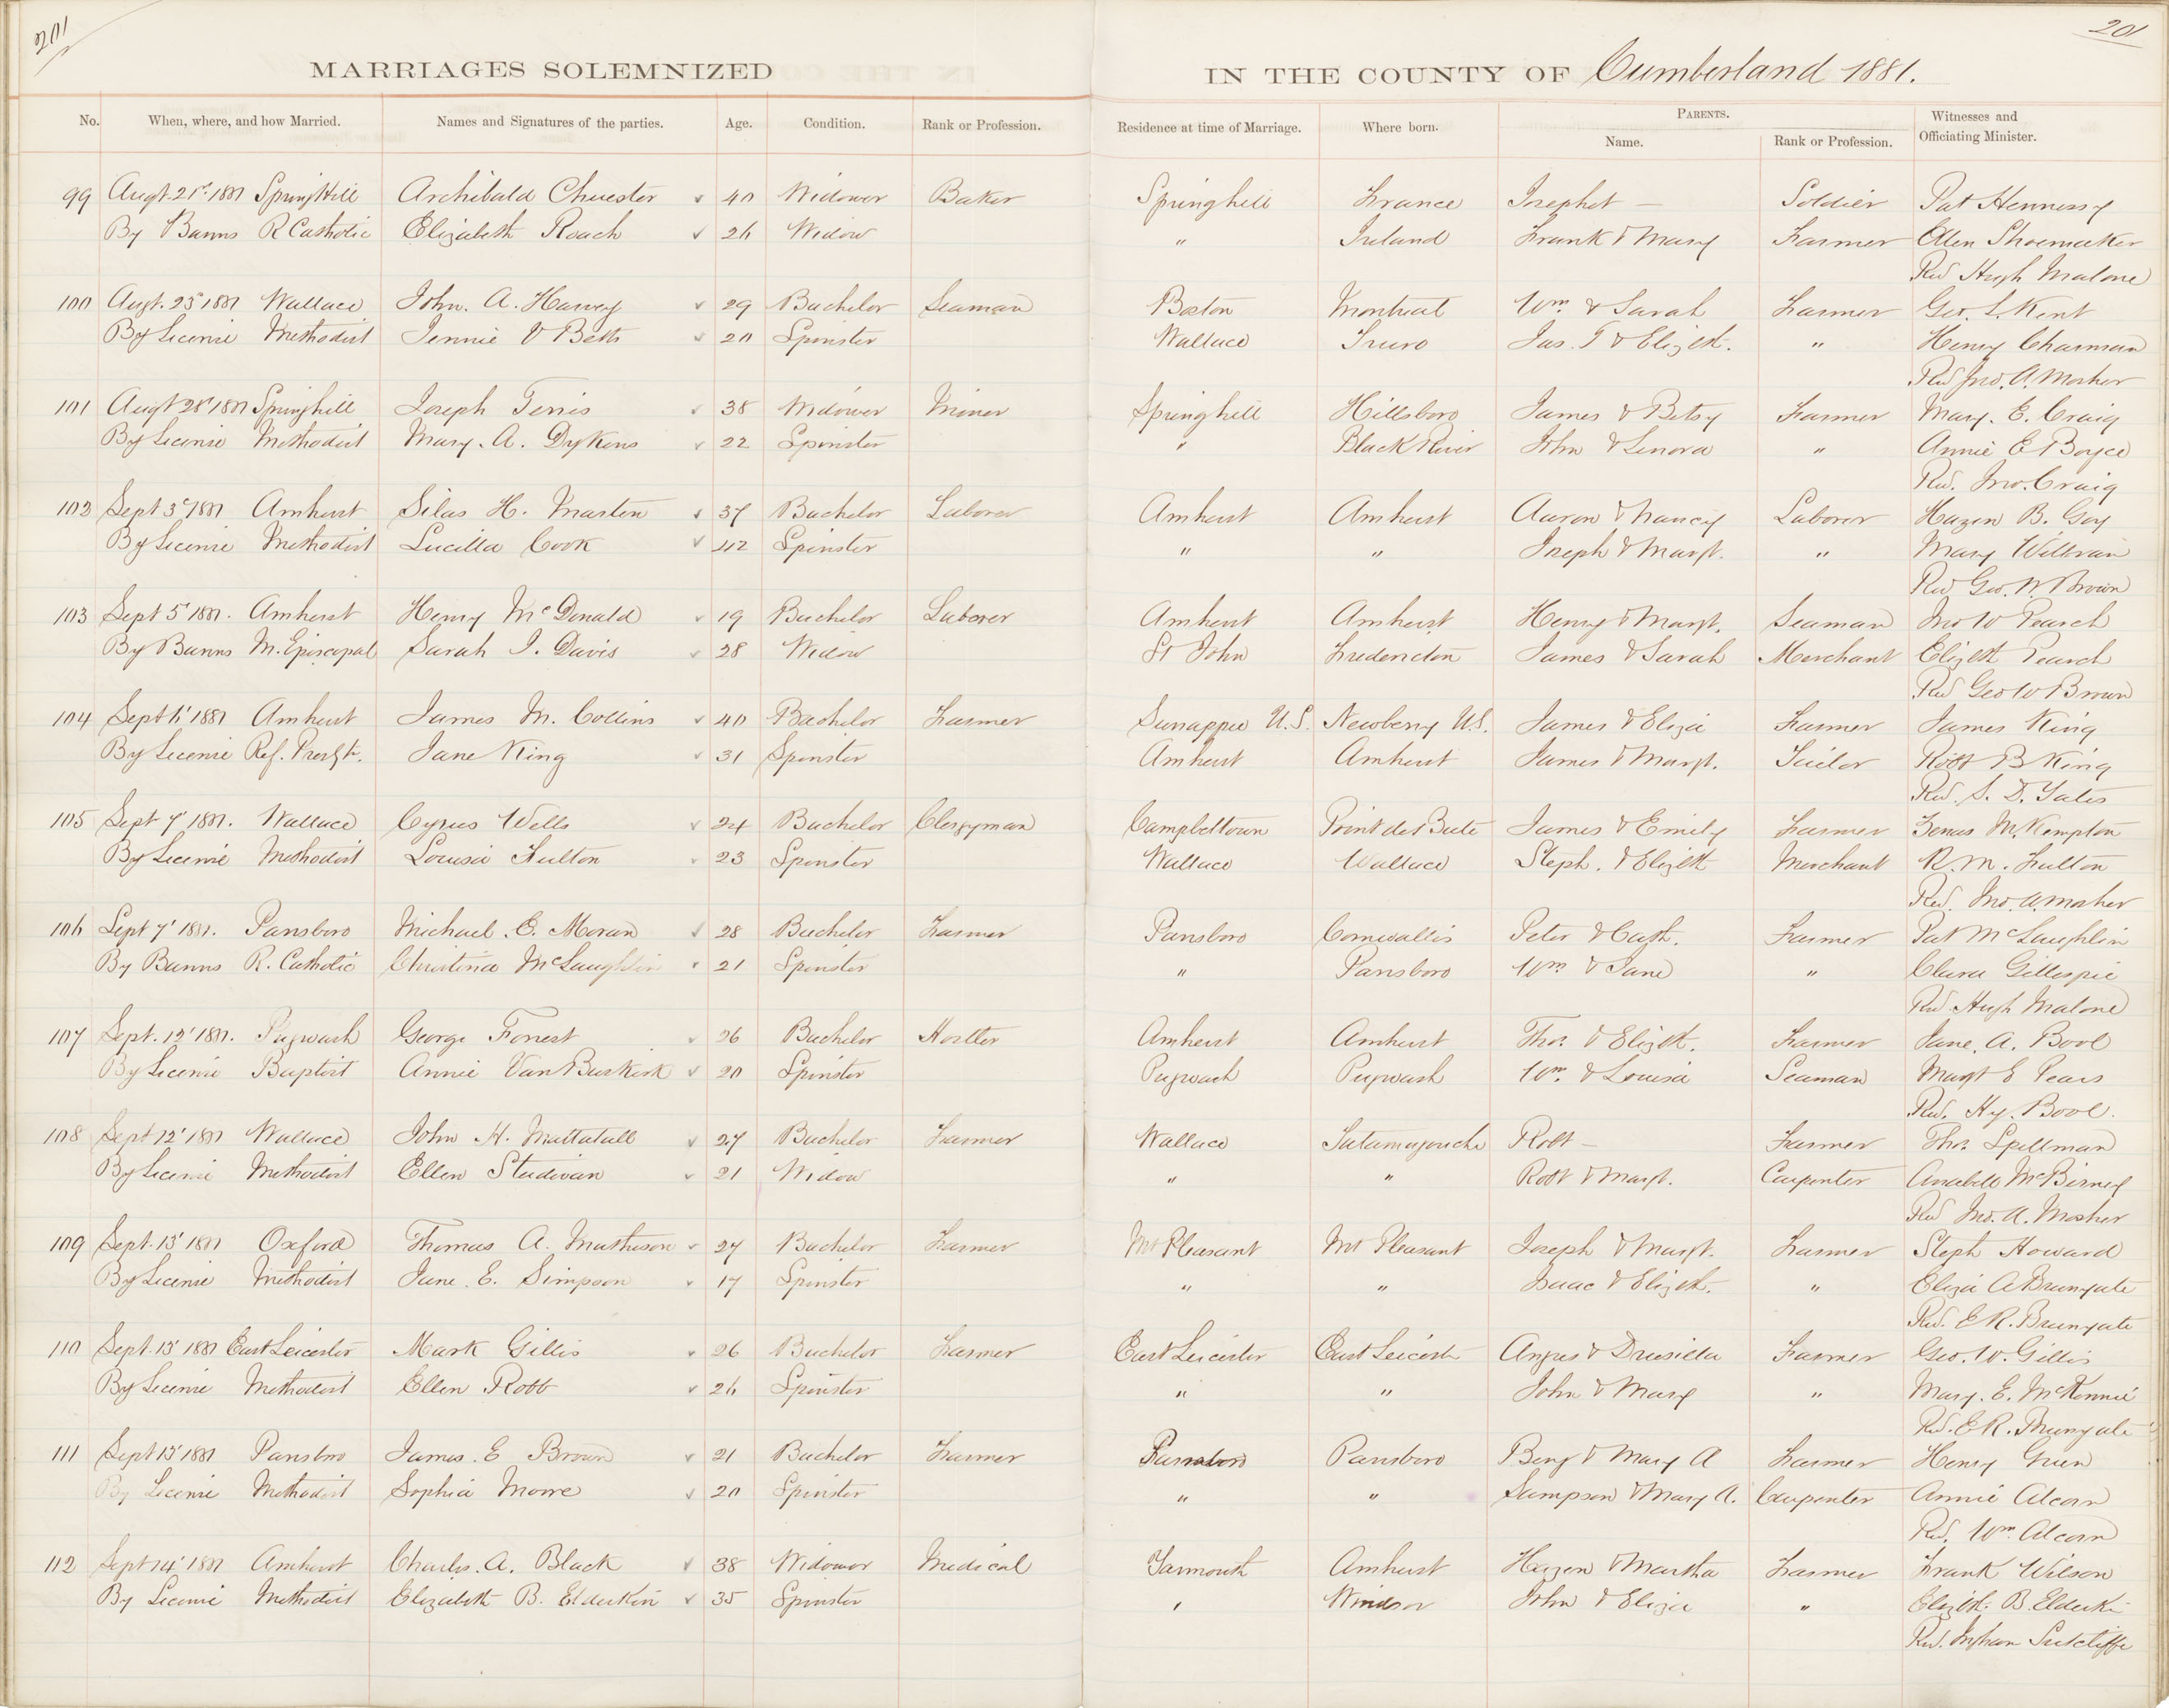 201
201
MARRIAGES SOLEMNIZED IN THE COUNTY OF Cumberland 1881.
No. When, where, and how Married. Names and Signatures of the parties. Age. Condition. Rank or Profession. Residence at time of Marriage. Where born. PARENTS. Name. Rank or Profession. Witnesses and Officiating Minister.
99 Augt. 21st 1881 SpringHill Archibald 40 Widower Baker Springhill France Josephet — Soldier Pat Hennessy
By Banns R Catholic Elizabeth Roach 26 Widow " Ireland Frank & Mary Farmer Ellen Shoemaker
Revd Hugh Malone
100 Augt. 23 1881 Wallace John. A. Harvey 29 Bachelor Seaman Boston Montreal Wm & Sarah Farmer Geo. L. Kent
By License Methodist Jennie V Betts 20 Spinster Wallace Truro Jas. T & Elizth. " Henry Charman
Revd Jno. A. Mosher
101 Augt 28 1881 Springhill Joseph Terris 38 Widower Miner Springhill Hillsboro James & Betsy Farmer Mary. E. Craig
By License Methodist Mary. A. Dykens 22 Spinster " Black River John & Lenora " Annie E Boyce
Rev. Jno. Craig
102 Sept 3d 1881 Amherst Silas H. Marten 37 Bachelor Laborer Amherst Amherst Aaron & Nancy Laborer Hazen B. Goy
By License Methodist Lucilla Cook 42 Spinster " " Joseph & Margt. " Mary
Rev Geo. W. Brown
103 Sept 5' 1881. Amherst Henry McDonald 19 Bachelor Laborer Amherst Amherst Henry & Margt. Seaman Jno W Pearch
By Banns M. Episcopal Sarah J. Davis 28 Widow St John Fredericton James & Sarah Merchant Elizth Pearch
Revd Geo W Brown
104 Sept 6' 1881 Amherst James M. Collins 40 Bachelor Farmer Sunappee U.S. Newberry U.S. James & Eliza Farmer James King
By License Ref. Presbt. Jane King 31 Spinster Amherst Amherst James & Margt. Tailor Robt B King
Rev. S. D. Yates
105 Sept 7' 1881. Wallace Cyrus Wells 24 Bachelor Clergyman Campbelltown Point des Bute James & Emily Farmer Zenas M. Kempton
By License Methodist Louisa Fulton 23 Spinster Wallace Wallace Steph. & Elizth Merchant R. M. Fulton
Rev. Jno. A. Mosher
106 Sept 7' 1881. Parrsboro Michael. E. Moran 28 Bachelor Farmer Parrsboro Cornwallis Peter & Cath. Farmer Pat McLaughlin
By Banns R. Catholic Christina McLaughlin 21 Spinster " Parrsboro Wm & Jane " Clara Gillespie
Rev Hugh Malone
107 Sept. 12' 1881. Pugwash George Forrest 26 Bachelor Hostler Amherst Amherst Thos. & Elizth. Farmer Jane. A. Bool
By License Baptist Annie VanBuskirk 20 Spinster Pugwash Pugwash Wm. & Louisa Seaman Margt E Pears
Rev. Hy. Bool.
108 Sept 12' 1881 Wallace John H. Mattatall 27 Bachelor Farmer Wallace Tatamagouche Robt — Farmer Thos. Spellman
By License Methodist Ellen Studivan 21 Widow " " Robt & Margt. Carpenter Anabelle McBirney
Rev Jno. A. Mosher
109 Sept. 13' 1881 Oxford Thomas A. Mattheson 27 Bachelor Farmer Mt Pleasant Mt Pleasant Joseph & Margt. Farmer Steph Howard
By License Methodist Jane. E. Simpson 17 Spinster " " Isaac & Elizth. " Eliza A Brunyate
Rev. E R. Brunyate
110 Sept. 13' 1881 East Leicester Mark Gillis 26 Bachelor Farmer East Leicester East Leicester Angus & Drusilla Farmer Geo. W. Gillis
By License Methodist Ellen Robb 26 Spinster " " John & Mary " Mary. E. McKinnie
Rev. E R. Brunyate
111 Sept 13' 1881 Parrsboro James. E Brown 21 Bachelor Farmer Parrsboro Parrsboro Benj & Mary A Farmer Henry Green
By License Methodist Sophia Moore 20 Spinster " " Sampson & Mary A. Carpenter Annie Alcorn
Rev. Wm. Alcorn
112 Sept 14' 1881 Amherst Charles. A. Black 38 Widower Medical Yarmouth Amherst Hazen & Martha Farmer Frank Wilson
By License Methodist Elizabeth B. Elderkin 35 Spinster " Windsor John & Eliza " Elizth. B. Elderkin
Rev. Ingham Sutcliffe